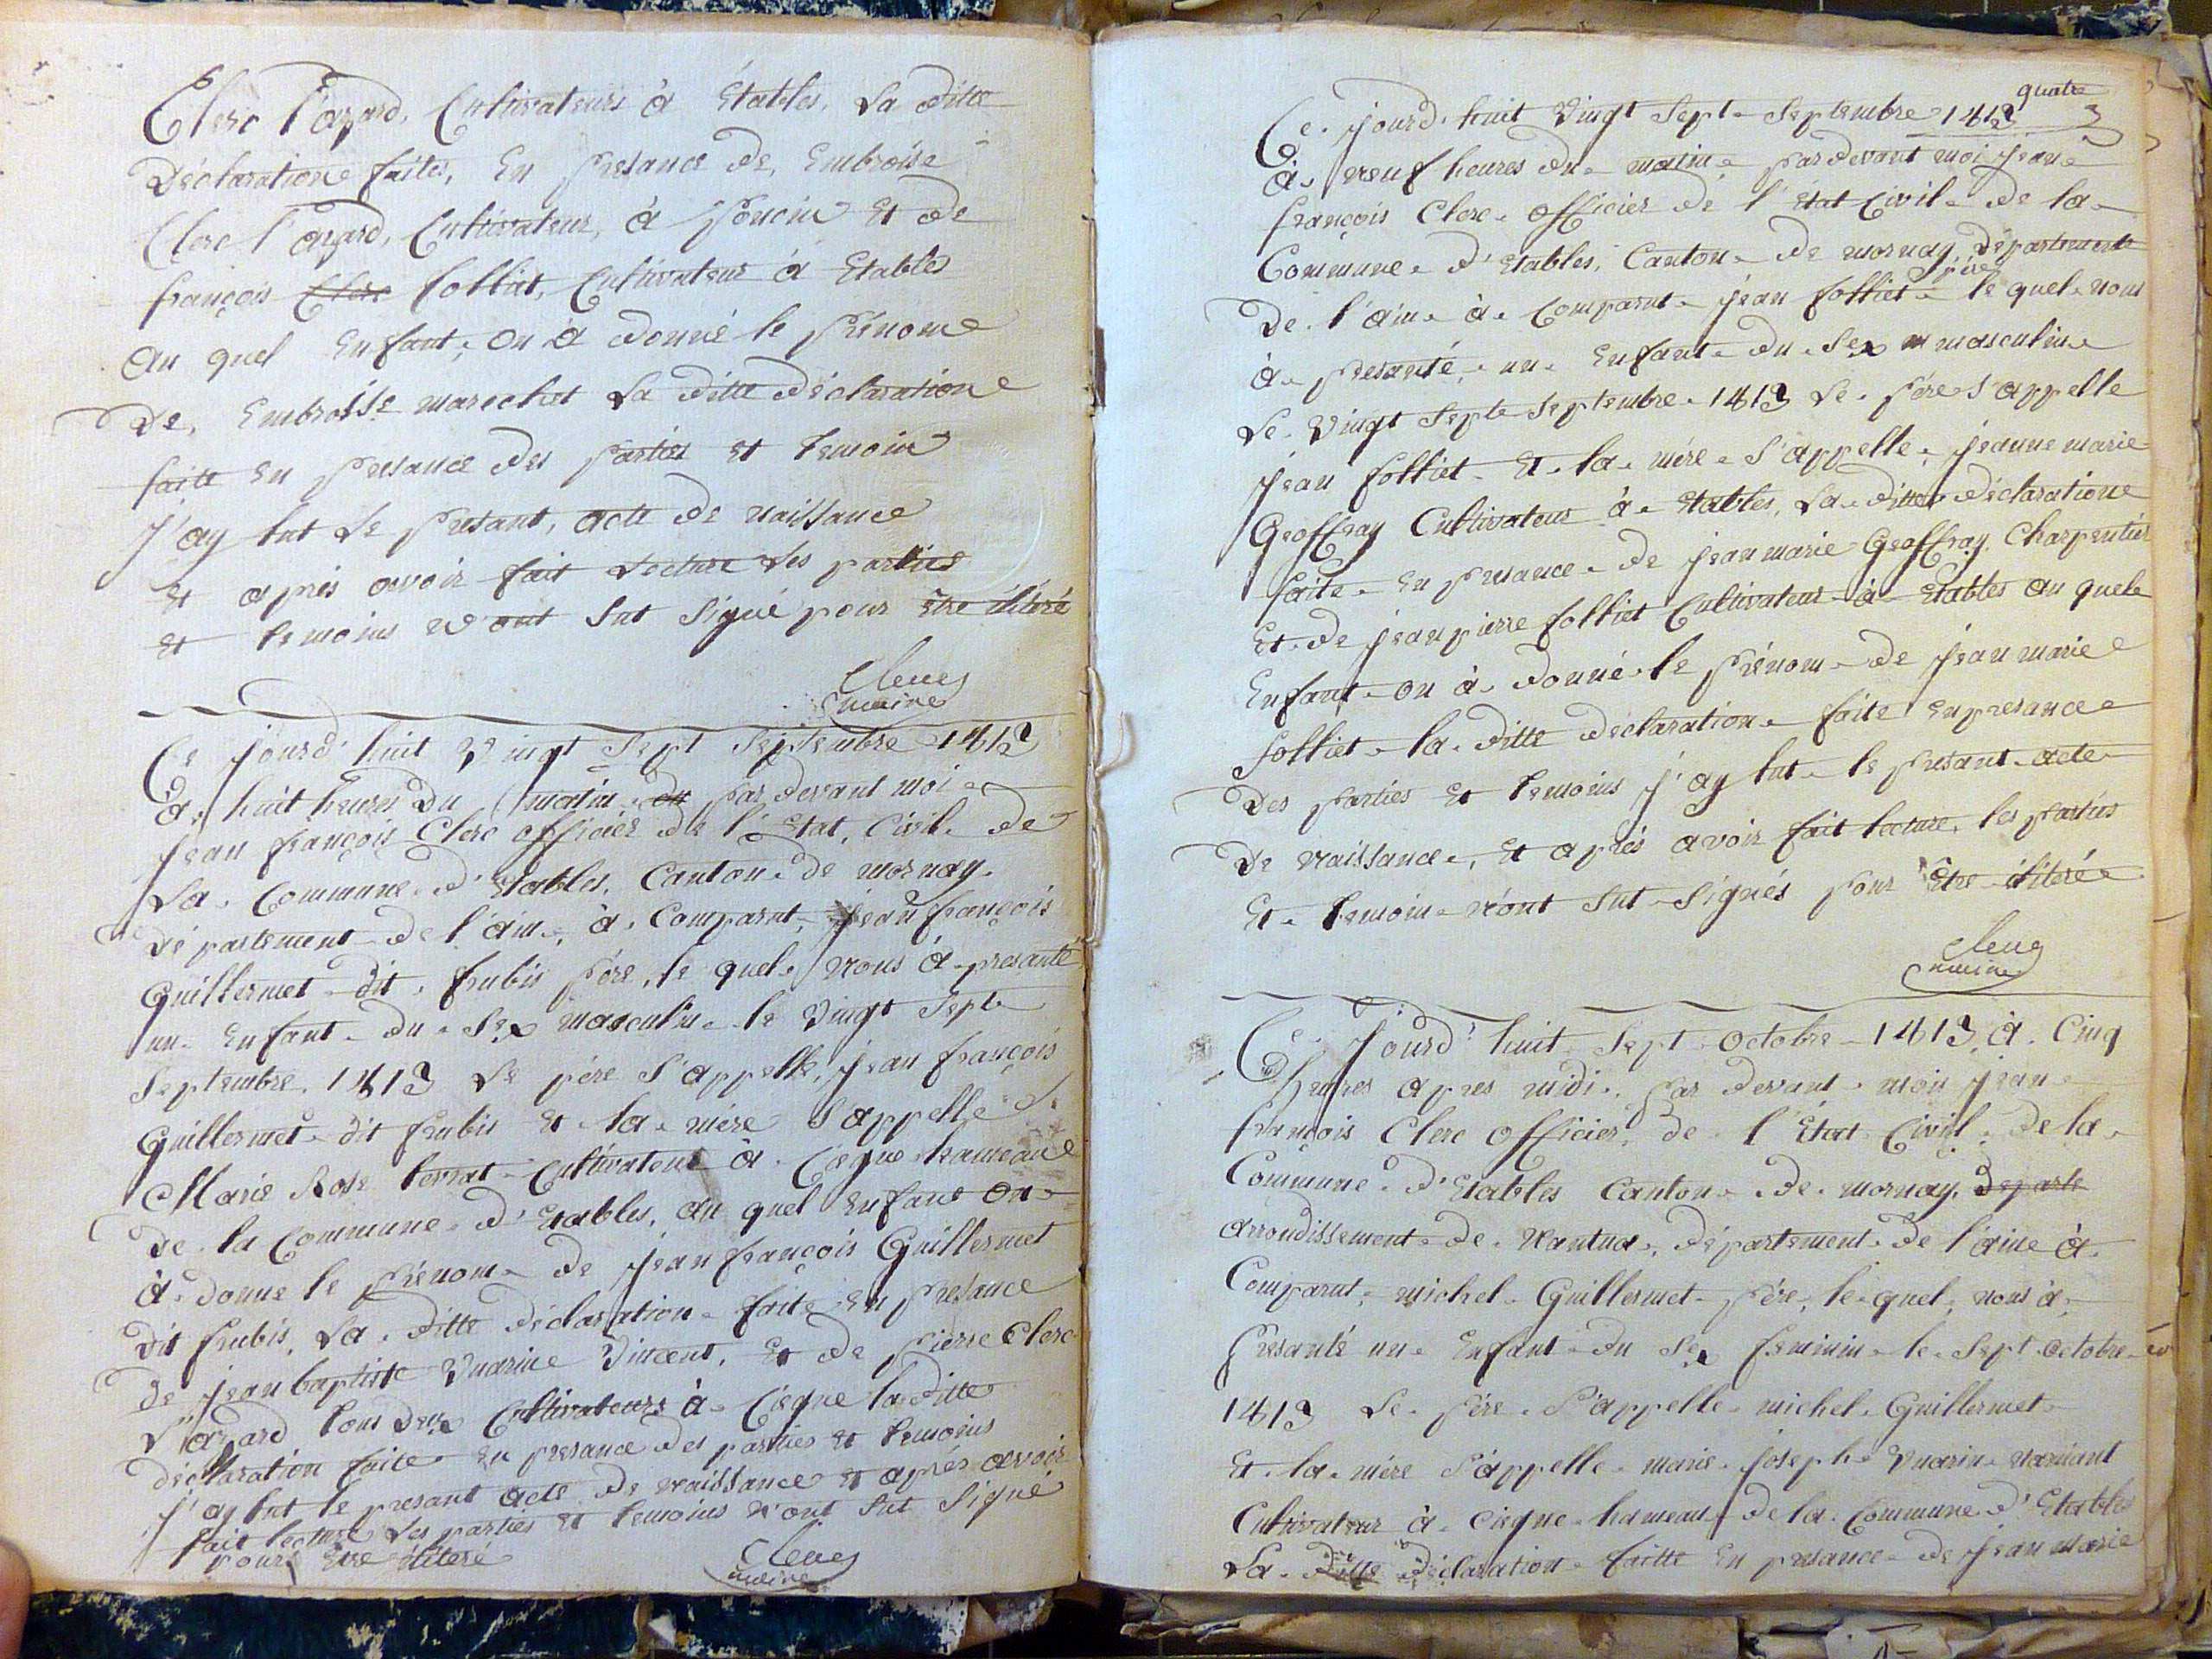 Clerc l'azard, Cultivateurs à Etables, La ditte
Déclaratione faites, En presance de, Embroise
Clerc l'azard, Cultivateur, à poncin et de
françois Clerc folliet, Cultivateur à Etables
au quel Enfant, on à donné le prénome
De, Embroisse marechet La ditte déclaratione
faitte En presance des parties et temoins
J'ay lut Le presant, acte de naissance
Et après avoir fait Lecture Les parties
et temoins n'ont sut signé pour être iliteré
Clerc
maire
Ce jourd'huit Vingt Sept Septembre 1813
à huit heures du matin par devant moi
Jean françois Clerc officier de l'Etat, Civil de
La Commune d'Etables, Canton de mornay.
Département de l'ain, à Comparut, Jean françois
Guillermet dit frubis père, le quel nous à presanté
un Enfant du Sex masculin le Vingt Sept
Septembre 1813 Le père S'appelle, Jean françois
Guillermet dit frubis et la mère S'appelle
Marie Rose terrat Cultivateur à Ciegne hameaue
De la Commune d'Etables, au quel Enfant on
à donne le prénom de Jean françois Guillermet
dit frubis, La ditte déclaration faite En presance
de Jean baptiste Vuarine Vincent, Et de pierre Clerc
L'azard tous deux Cultivateurs à Ciegne la ditte
déclaration faite en presance des parties et temoins
J'ay lut le presant acte de naissance et après avoir
fait lecture Les parties et temoins n'ont sut signé
pour être iliteré
Clerc
maire
quatre
Ce jourd'huit Vingt Sept Septembre 1813
à neuf heures du matin par devant moi Jean
françois Clerc officier de l'Etat Civil de la
Commune d'Etables, Canton de mornay, Département
père
De l'ain à Comparut Jean folliet le quel nous
à presanté un Enfant du Sex masculin
Le Vingt Sept Septembre 1813 Le père S'appelle
Jean folliet Et la mère S'appelle Jeanne marie
Geoffray Cultivateur à Etables, La ditte déclaratione
faite En presance de Jean marie Geoffray Charpentier
Et de Jean pierre folliet Cultivateur à Etables au quel
Enfant on à donné le prénom de Jean marie
folliet la ditte déclaration faite En presance
Des parties et temoins J'ay lut le presant acte
De naissance, Et après avoir fait lecture, les parties
Et temoin n'ont sut signés pour être iliteré
Clerc
maire
Ce Jourd'huit Sept Octobre 1813 à Cinq
heures apres midi, par devant moi Jean
françois Clerc officier de l'Etat Civil de la
Commune d'Etables Canton de mornay. Departe
arrondissement de Nantua, département de l'aine à
Comparut, michel Guillermet père, le quel nous à
Presanté un Enfant du Sex feminin le Sept Octobre
1813 Le père S'appelle michel Guillermet
Et la mère S'appelle marie joseph Vuarin
Cultivateur à Ciegne hameau de la Commune d'Etables
La ditte déclaration faitte En presance de Jean marie